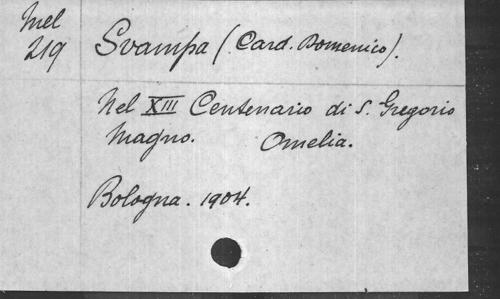 Mel
219
Svampa (Card. Domenico).
Nel XIII Centenario di S. Gregorio
Magno. Omelia.
Bologna. 1904.